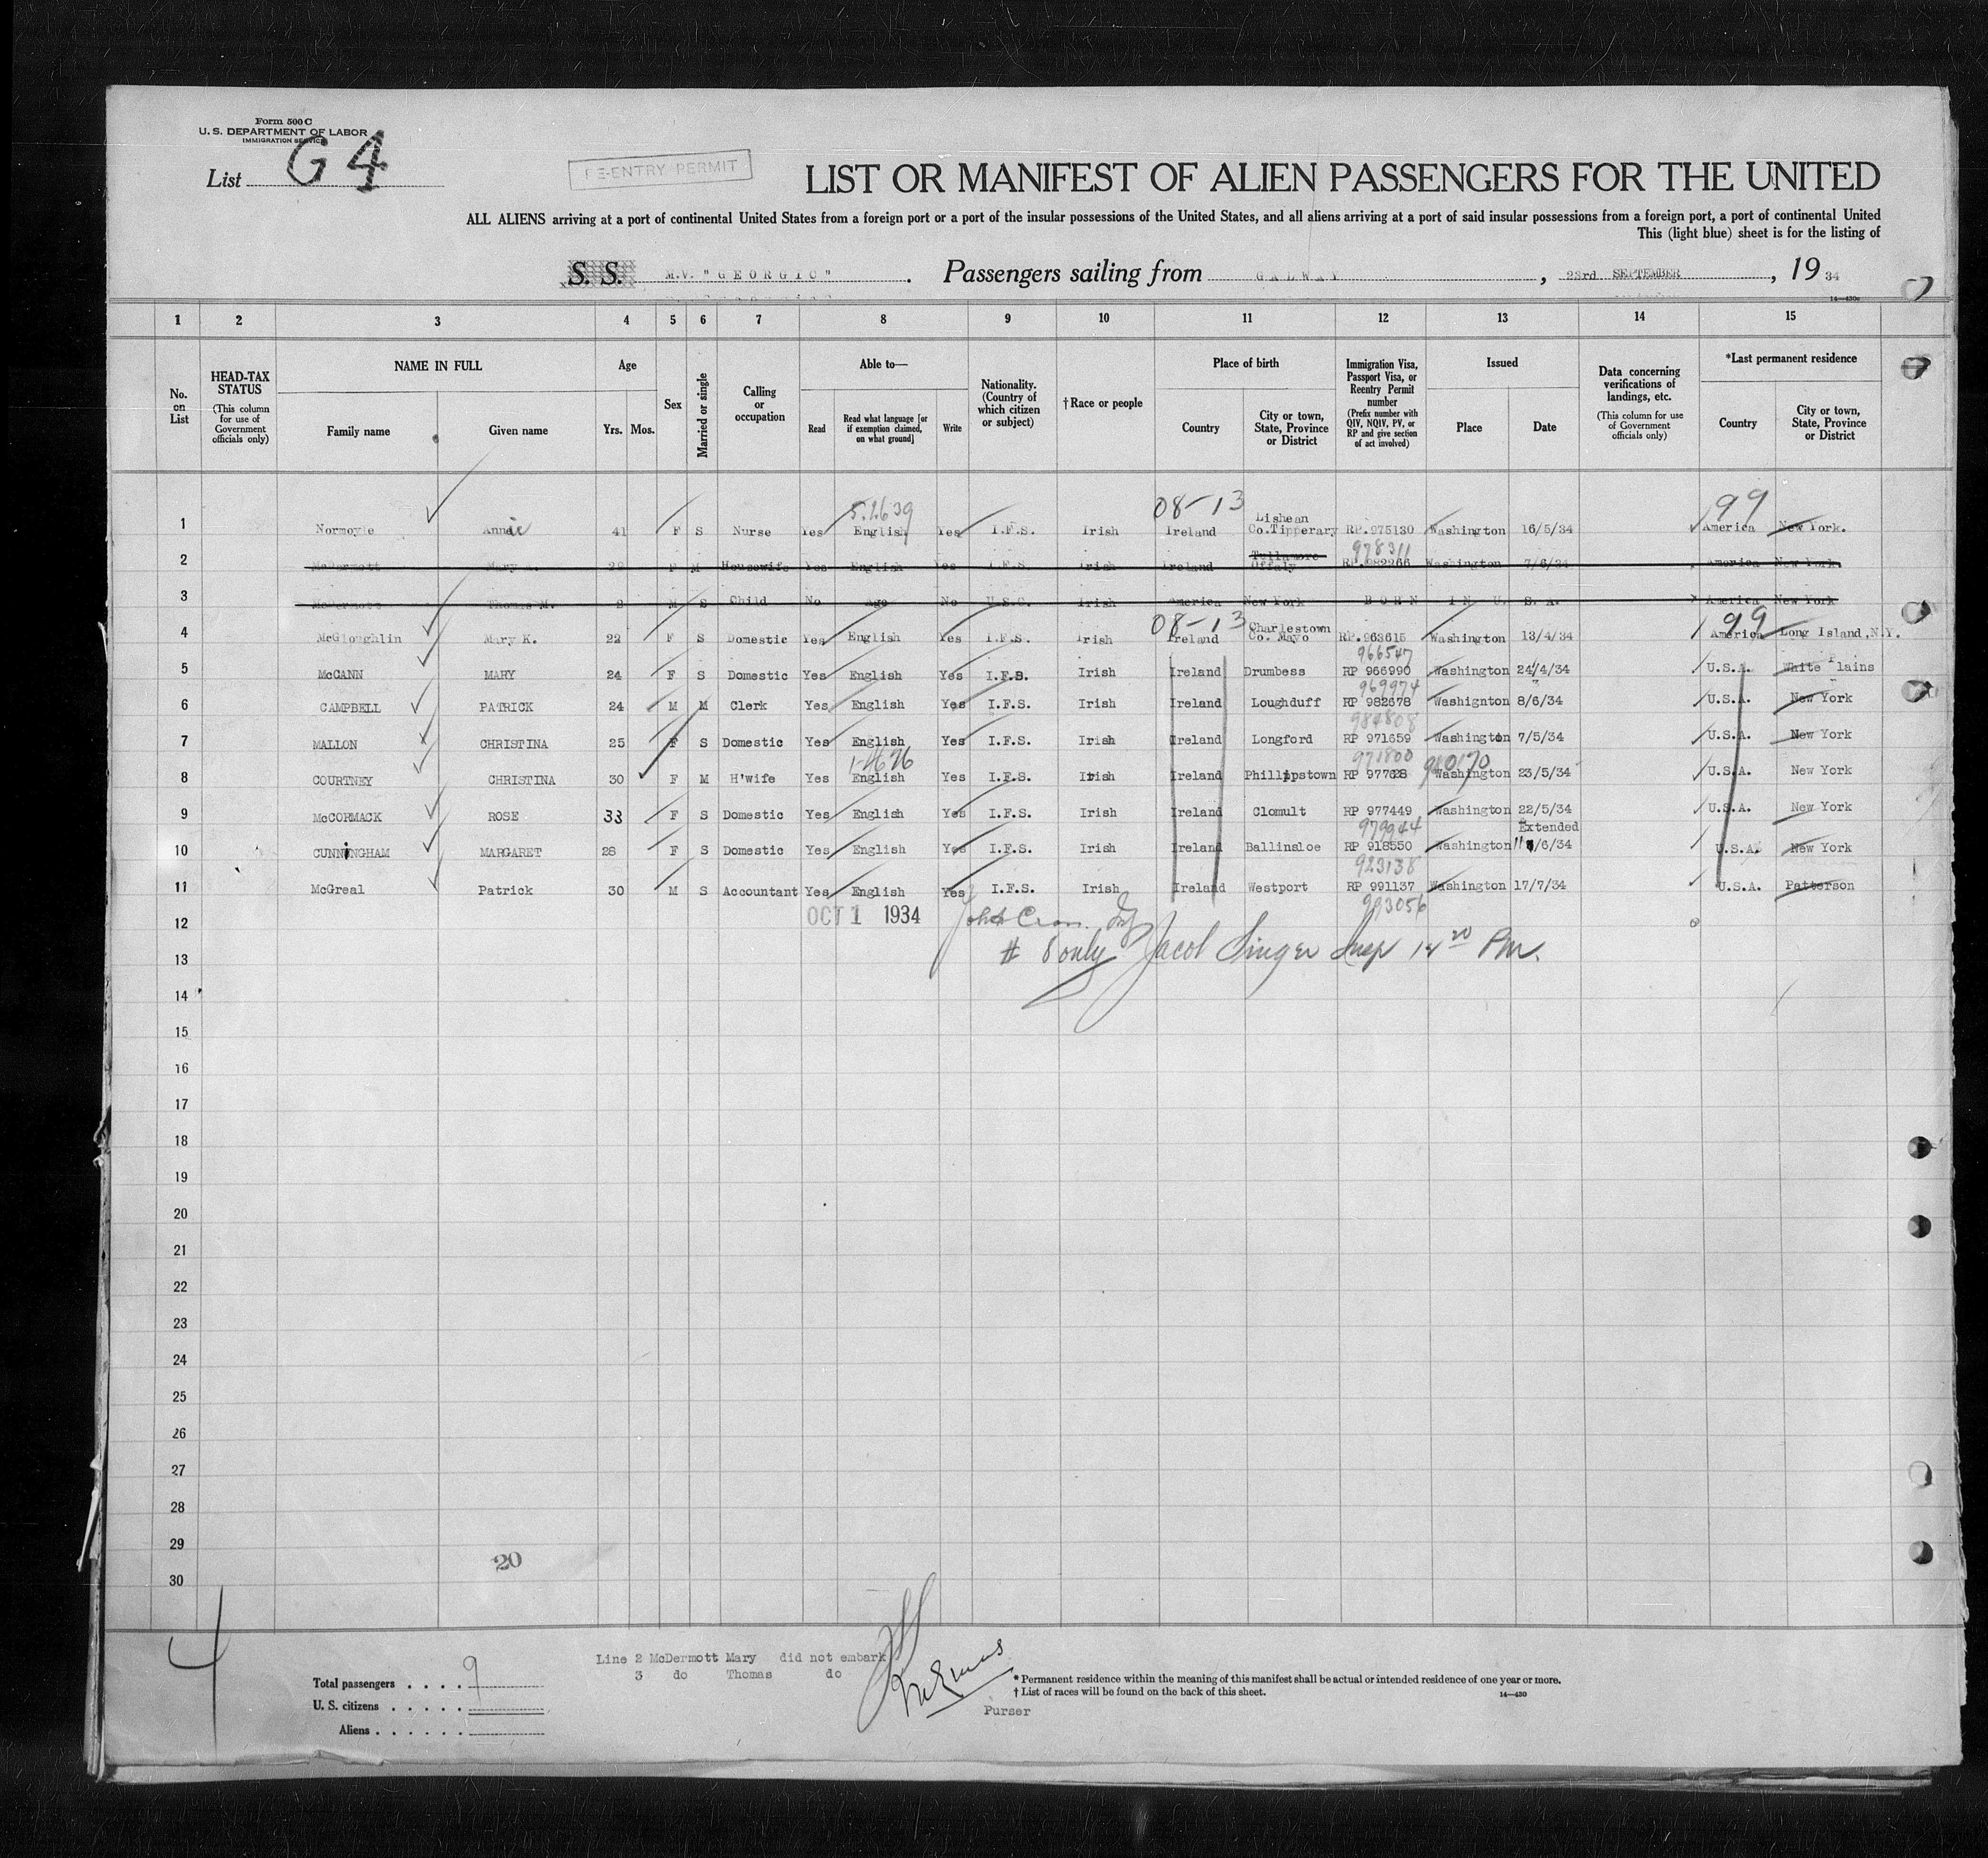 Form 500 C
U. S. DEPARTMENT OF LABOR
IMMIGRATION SERVICE
List G 4
RE-ENTRY PERMIT
LIST OR MANIFEST OF ALIEN PASSENGERS FOR THE UNITED
ALL ALIENS arriving at a port of continental United States from a foreign port or a port of the insular possessions of the United States, and all aliens arriving at a port of said insular possessions from a foreign port, a port of continental United
This (light blue) sheet is for the listing of
S. S. M.V. "GEORGIC". Passengers sailing from GALWAY, 23rd SEPTEMBER, 19 34
14—430c
1 2 3 4 5 6 7 8 9 10 11 12 13 14 15
No. on List
HEAD-TAX STATUS
(This column for use of Government officials only)
NAME IN FULL
Family name Given name
Age
Yrs. Mos.
Sex
Married or single
Calling or occupation
Able to—
Read Read what language [or if exemption claimed, on what ground] Write
Nationality. (Country of which citizen or subject)
†Race or people
Place of birth
Country City or town, State, Province or District
Immigration Visa, Passport Visa, or Reentry Permit number
(Prefix number with QIV, NQIV, PV, or RP and give section of act involved)
Issued
Place Date
Data concerning verifications of landings, etc.
(This column for use of Government officials only)
*Last permanent residence
Country City or town, State, Province or District
08-13 99
1 Normoyle Annie 41 F S Nurse Yes English Yes I.F.S. Irish Ireland Lishean Co.Tipperary RP.975130 Washington 16/5/34 America New York.
978311
2 McDermott Mary A. 29 F M Housewife Yes English Yes I.F.S. Irish Ireland Tullamore Offaly RP.982266 Washington 7/6/34 America New York.
3 McDermott Thomas M. 2 M S Child No Age No U.S.C. Irish America New York BORN IN U. S. A. America New York
08-13 99
4 McGloughlin Mary K. 22 F S Domestic Yes English Yes I.F.S. Irish Ireland Charlestown Co. Mayo RP.963615 Washington 13/4/34 America Long Island,N.Y.
966547
5 McCANN MARY 24 F S Domestic Yes English Yes I.F.S. Irish Ireland Drumbess RP 966990 Washington 24/4/34 U.S.A. White Plains
969974
6 CAMPBELL PATRICK 24 M M Clerk Yes English Yes I.F.S. Irish Ireland Loughduff RP 982678 Washignton 8/6/34 U.S.A. New York
984808
7 MALLON CHRISTINA 25 F S Domestic Yes English Yes I.F.S. Irish Ireland Longford RP 971659 Washington 7/5/34 U.S.A. New York
971800
8 COURTNEY CHRISTINA 30 F M H'wife Yes English Yes I.F.S. Irish Ireland Phillipstown RP 97728 Washington 23/5/34 U.S.A. New York
9 McCORMACK ROSE 33 F S Domestic Yes English Yes I.F.S. Irish Ireland Clomult RP 977449 Washington 22/5/34 U.S.A. New York
979944 Extended
10 CUNNINGHAM MARGARET 28 F S Domestic Yes English Yes I.F.S. Irish Ireland Ballinsloe RP 918550 Washington 11/6/34 U.S.A. New York
923138
11 McGreal Patrick 30 M S Accountant Yes English Yes I.F.S. Irish Ireland Westport RP 991137 Washington 17/7/34 U.S.A. Patterson
993056
12 OCT 1 1934
13 # 8 only Jacob Singer Insp PM.
14
15
16
17
18
19
20
21
22
23
24
25
26
27
28
29
20
30
4
Line 2 McDermott Mary did not embark
3 do Thomas do
Total passengers . . . . 9
U. S. citizens . . . . .
Aliens . . . . . .
Purser
* Permanent residence within the meaning of this manifest shall be actual or intended residence of one year or more.
† List of races will be found on the back of this sheet.
14—430